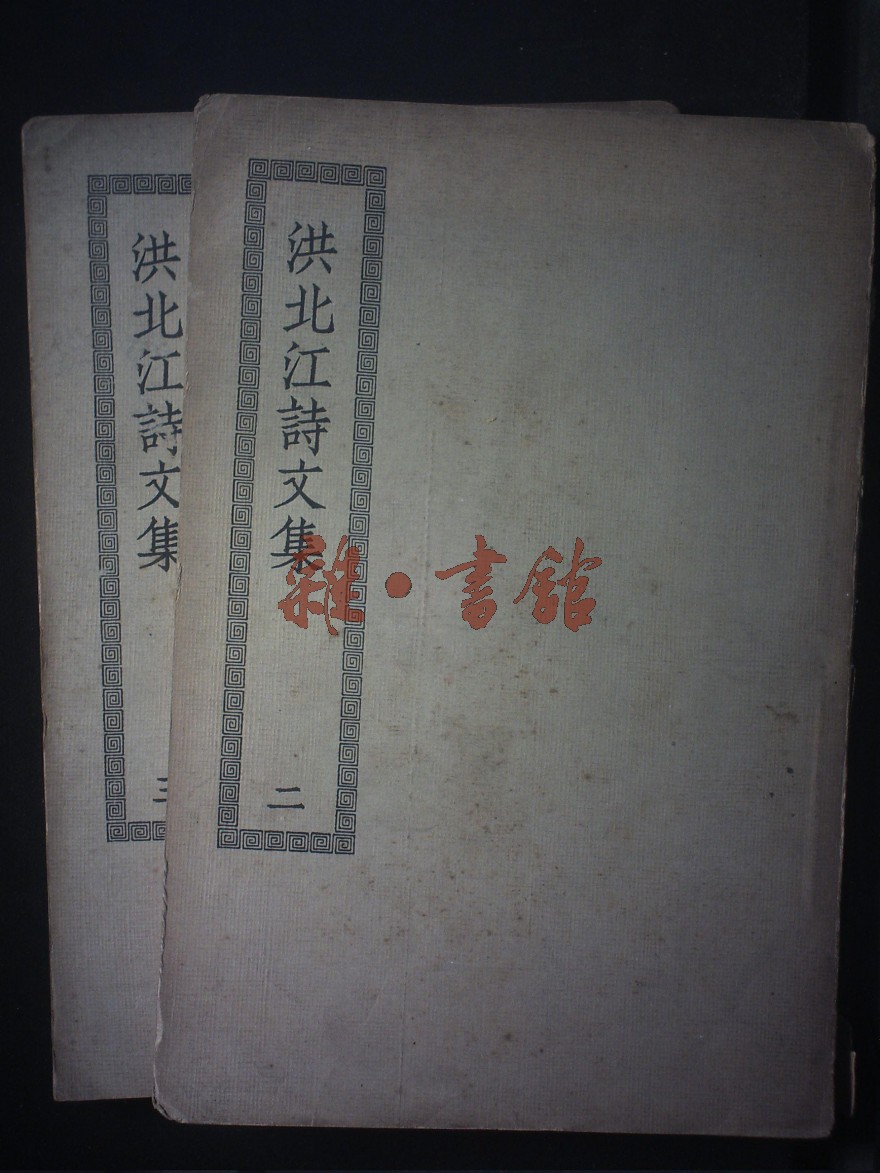 洪北江詩文集
二
洪北江詩文集
三
雜·書館